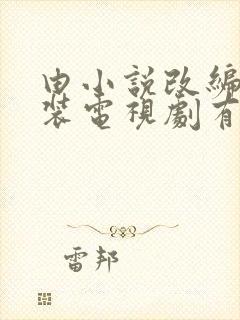 由小說改編
裝電視劇有
雷邦